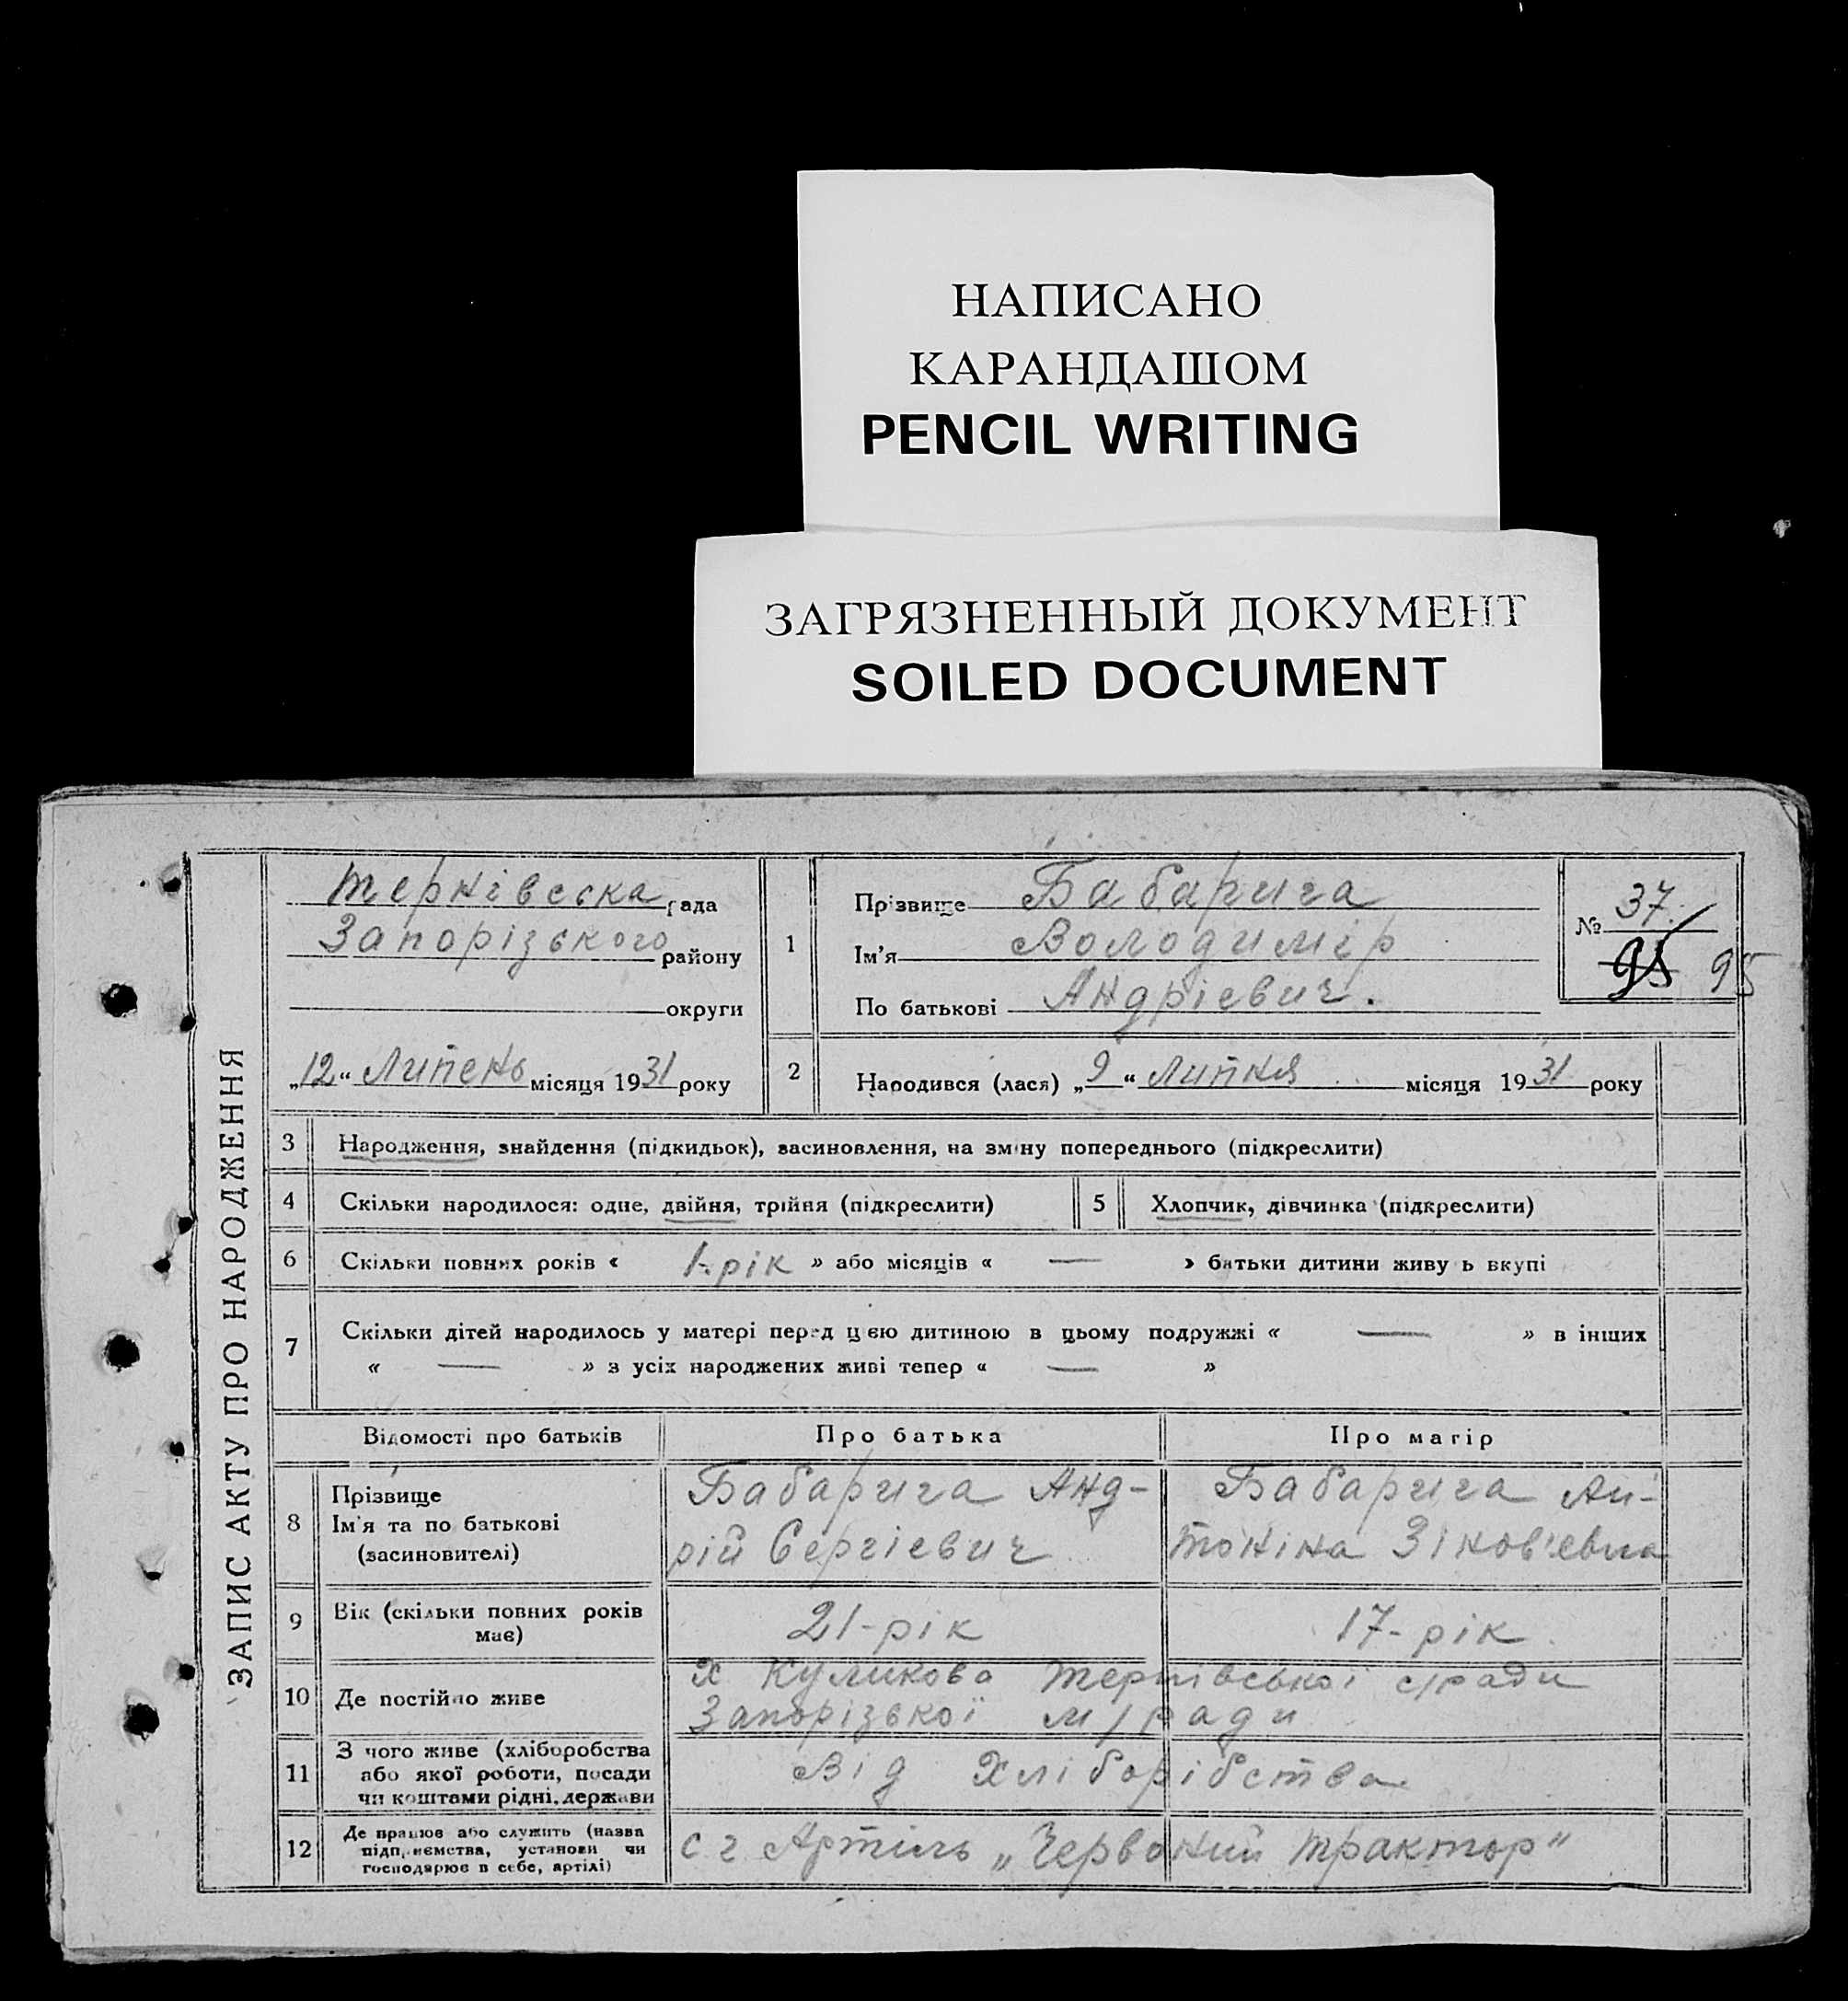 НАПИСАНО
КАРАНДАШОМ
PENCIL WRITING
ЗАГРЯЗНЕННЫЙ ДОКУМЕНТ
SOILED DOCUMENT
ЗАПИС АКТУ ПРО НАРОДЖЕННЯ
Тернівсска рада
Запорізького району
округи
„12“ Липень місяця 1931 року
1
Прізвище Бабарига
Ім'я Володимір
По батькові Андріевич.
№ 37.
95 95
2 Народився (лася) „9“ Липня місяця 1931 року
3 Народження, знайдення (підкидьок), засиновлення, на зміну попереднього (підкреслити)
4 Скільки народилося: одне, двійня, трійня (підкреслити) 5 Хлопчик, дівчинка (підкреслити)
6 Скільки повних років « 1-рік » або місяців « — » батьки дитини живуть вкупі
7 Скільки дітей народилось у матері перед цією дитиною в цьому подружжі « — » в інших
« — » з усіх народжених живі тепер « — »
Відомості про батьків Про батька Про матір
8 Прізвище
Ім'я та по батькові
(засиновителі)
Бабарига Анд-
рій Сергіевич
Бабарига Ан-
тоніна Зінов'евна
9 Вік (скільки повних років
має)
21-рік 17-рік
10 Де постійно живе
х Куликово Тернівської с/ради
Запорізької м/ради
11 З чого живе (хліборобства
або якої роботи, посади
чи коштами рідні, держави
Від Хліборібства
12 Де працює або служить (назва
підприємства, установи чи
господарює в себе, артілі)
с г Артіль „Червоний трактор"